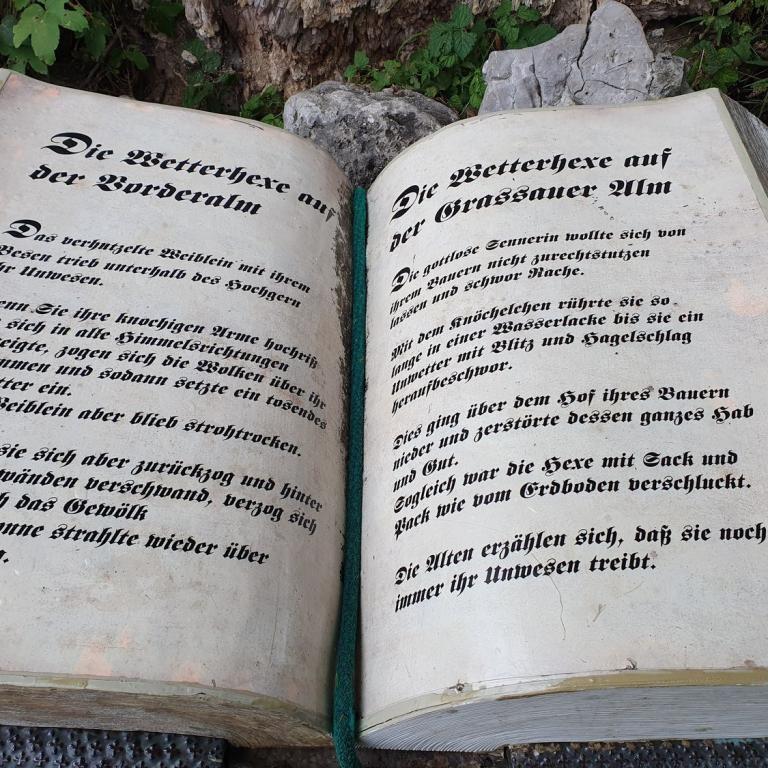 Die Wetterhexe auf
der Vorderalm
Das verhutzelte Weiblein mit ihrem
Besen trieb unterhalb des Hochgern
hr Unwesen.
enn Sie ihre knochigen Arme hochriß
sich in alle Himmelsrichtungen
eigte, zogen sich die Wolken über ihr
mmen und sodann setzte ein tosendes
tter ein.
Weiblein aber blieb strohtrocken.
sie sich aber zurückzog und hinter
wänden verschwand, verzog sich
h das Gewölk
onne strahlte wieder über
Die Wetterhexe auf
der Grassauer Alm
Die gottlose Sennerin wollte sich von
ihrem Bauern nicht zurechtstutzen
lassen und schwor Rache.
Mit dem Knöchelchen rührte sie so
lange in einer Wasserlacke bis sie ein
Unwetter mit Blitz und Hagelschlag
heraufbeschwor.
Dies ging über dem Hof ihres Bauern
nieder und zerstörte dessen ganzes Hab
und Gut.
Sogleich war die Hexe mit Sack und
Pack wie vom Erdboden verschluckt.
Die Alten erzählen sich, daß sie noch
immer ihr Unwesen treibt.